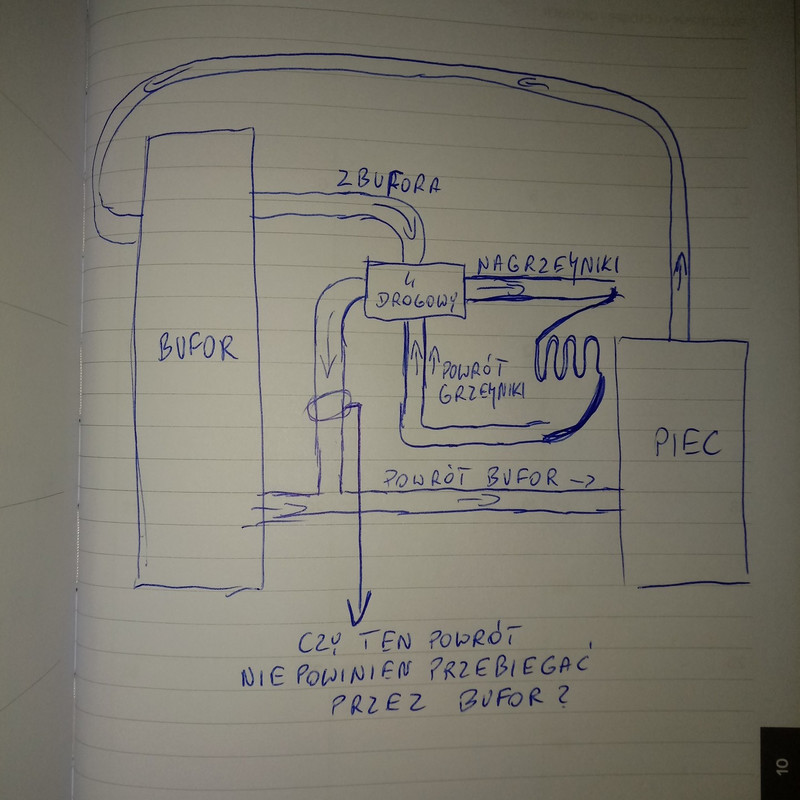 Z BUFORA
NAGRZEYNIKI
4
DROGOWY
BUFOR
POWRÓT
GRZEYNIKI
PIEC
POWRÓT BUFOR →
CZY TEN POWRÓT
NIE POWINIEN PRZEBIEGAĆ
PRZEZ BUFOR?
10